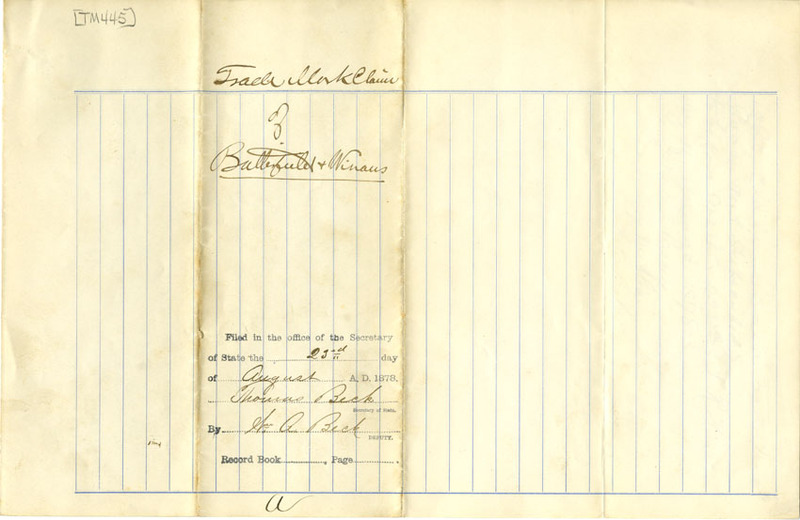 [TM445]
Trade Mark Claim
of
Butterfield & Winans
Filed in the office of the Secretary
of State the 23rd day
of August A. D. 1878.
Thomas Beck
Secretary of State.
By Wm A. Beck
DEPUTY.
Record Book , Page .
a